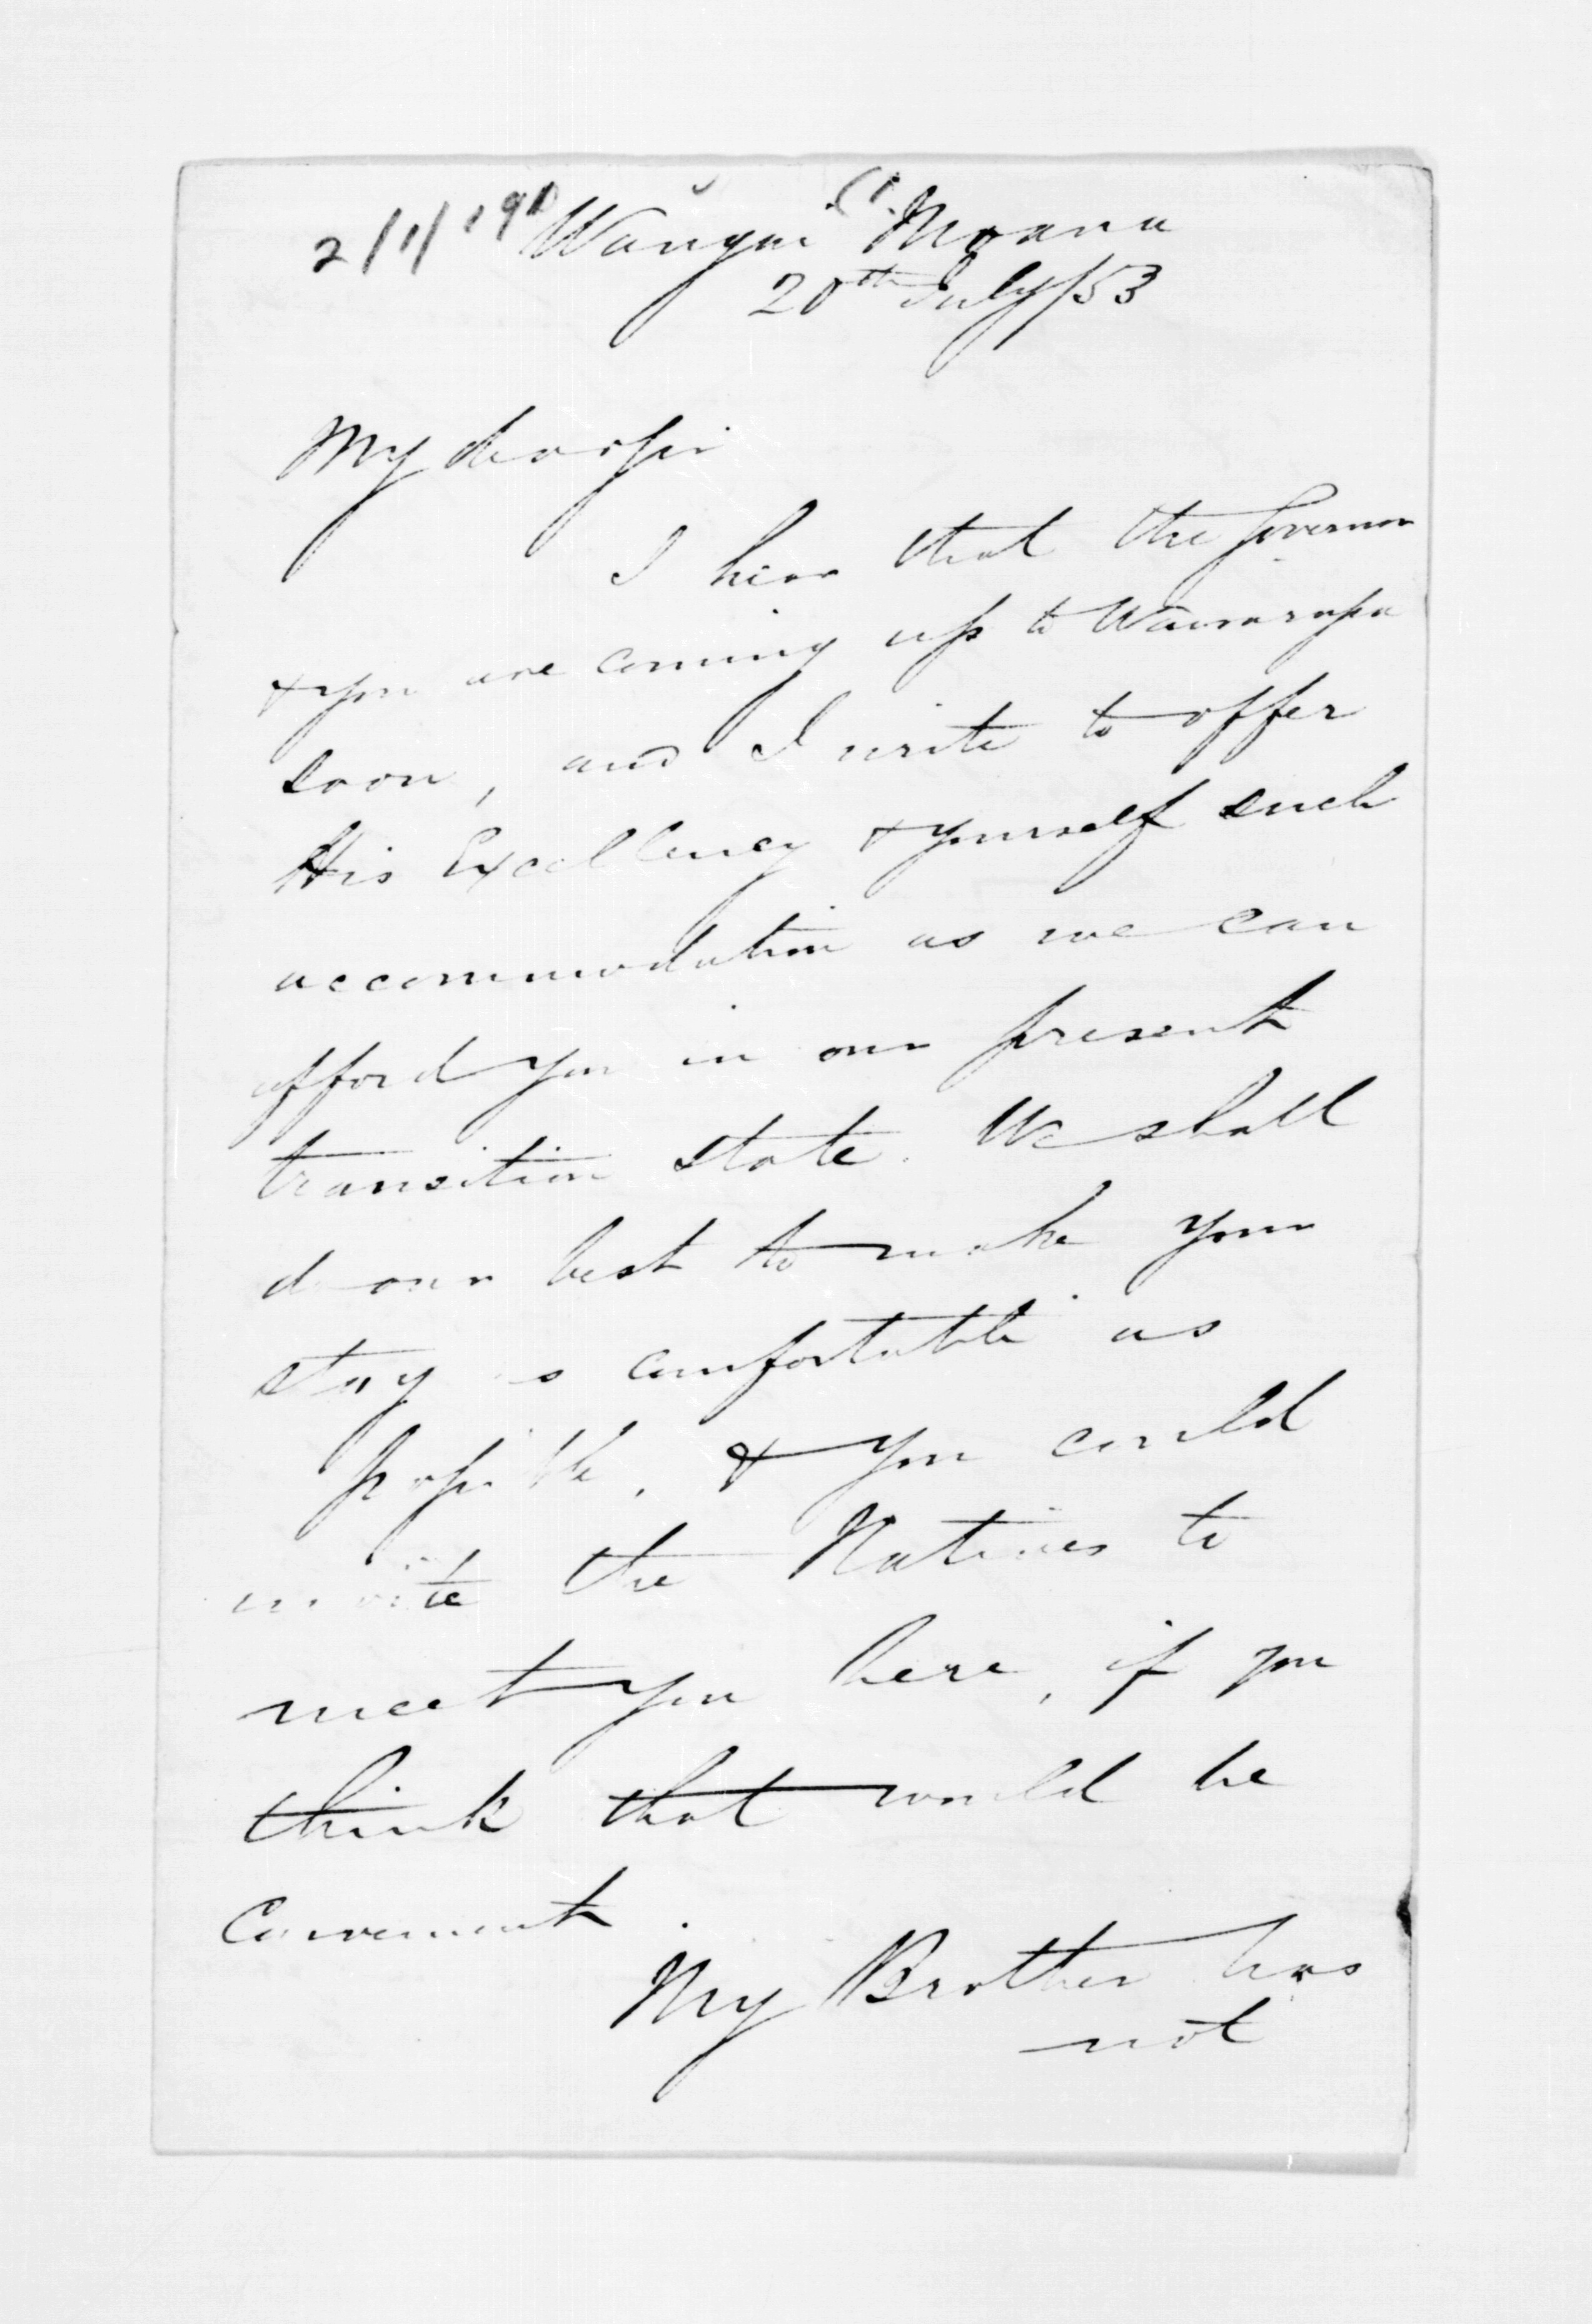 Wangai Moana
20th July/53
My dear Sir
I hear that the Governor
& you are coming up to Wairarapa
soon, and I write to offer
His Excellency & yourself such
accommodation as we can
afford you in our present
transition state. We shall
do our best to make your
stay as comfortable as
possible, & you could
invite the Natives to
meet you here, if you
think that would be
Convenient.
My Brother has
not